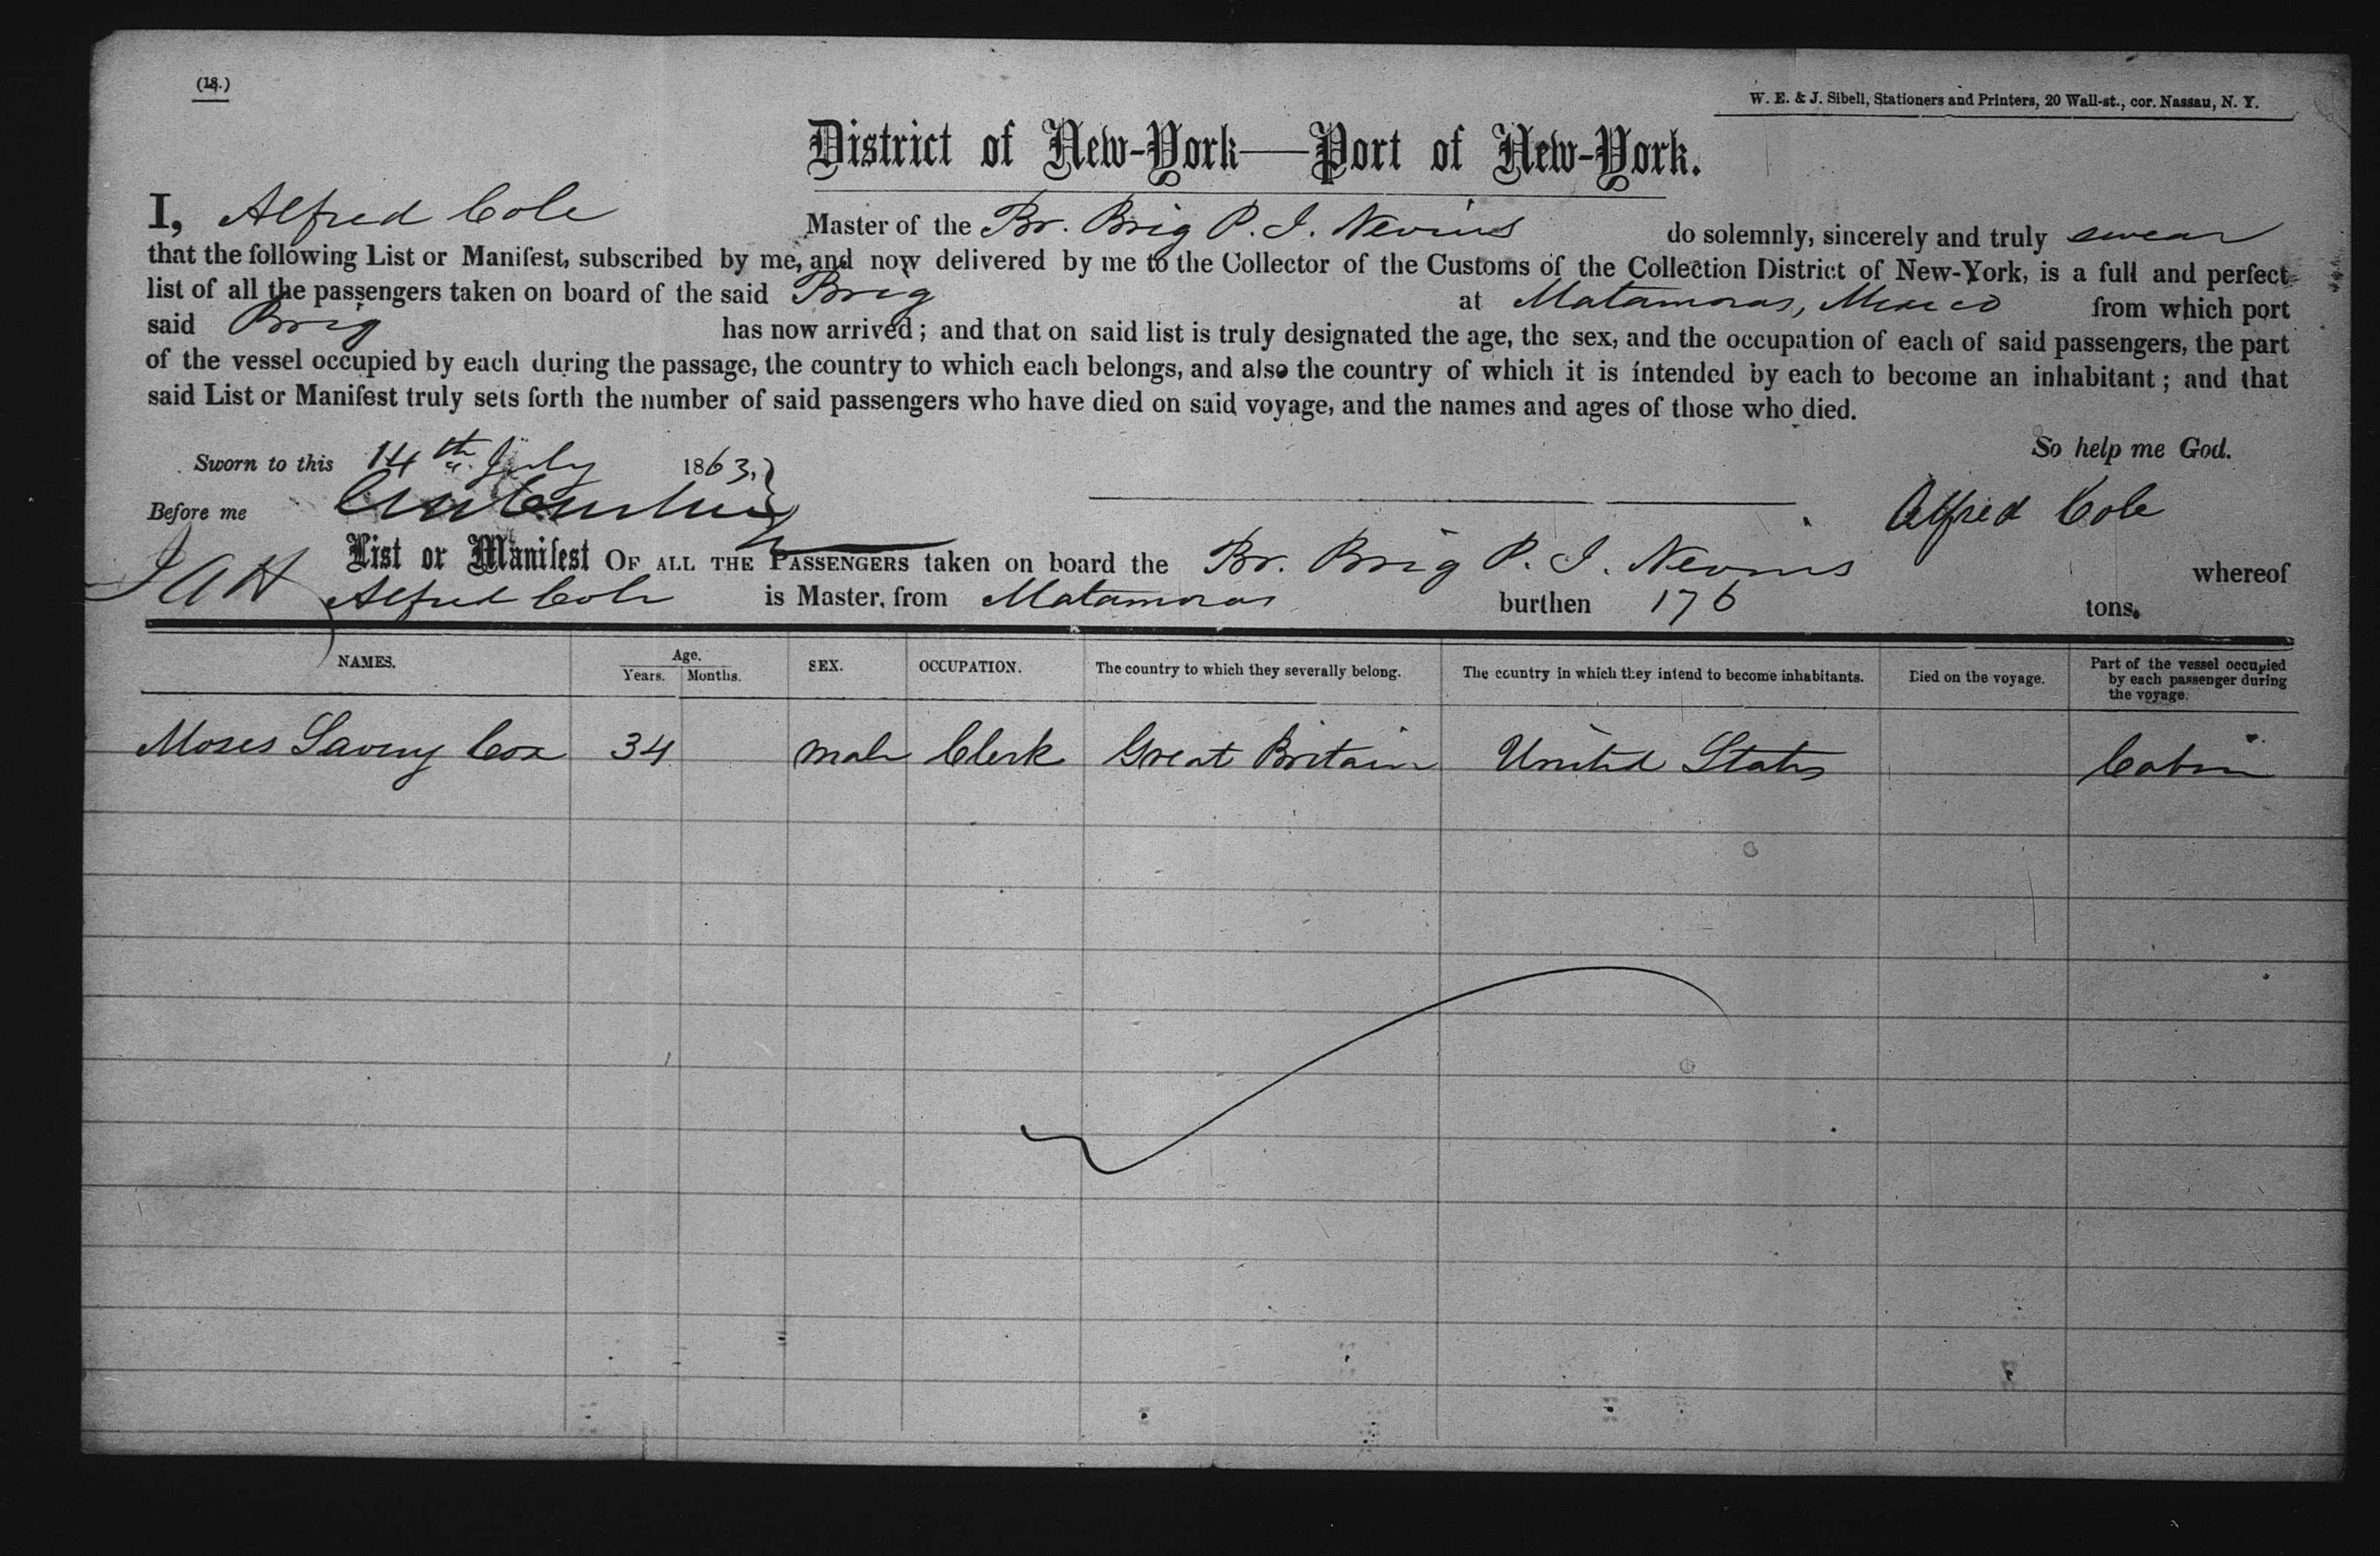 (18.)
W. E. & J. Sibell, Stationers and Printers, 20 Wall-st., cor. Nassau, N. Y.
District of New-York—Port of New-York.
I, Alfred Cole Master of the Br. Brig P. I. Nevius do solemnly, sincerely and truly swear
that the following List or Manifest, subscribed by me, and now delivered by me to the Collector of the Customs of the Collection District of New-York, is a full and perfect
list of all the passengers taken on board of the said Brig at Matamoras, Mexico from which port
said Brig has now arrived; and that on said list is truly designated the age, the sex, and the occupation of each of said passengers, the part
of the vessel occupied by each during the passage, the country to which each belongs, and also the country of which it is intended by each to become an inhabitant; and that
said List or Manifest truly sets forth the number of said passengers who have died on said voyage, and the names and ages of those who died.
So help me God.
Sworn to this 14th July 1863.
Before me
Alfred Cole
List or Manifest OF ALL THE PASSENGERS taken on board the Br. Brig P. I. Nevius whereof
JAH Alfred Cole is Master, from Matamoras burthen 176 tons.
NAMES. Age. Years. Months. SEX. OCCUPATION. The country to which they severally belong. The country in which they intend to become inhabitants. Died on the voyage. Part of the vessel occupied by each passenger during the voyage.
Moses Savery Cox 34 male Clerk Great Britain United States Cabin